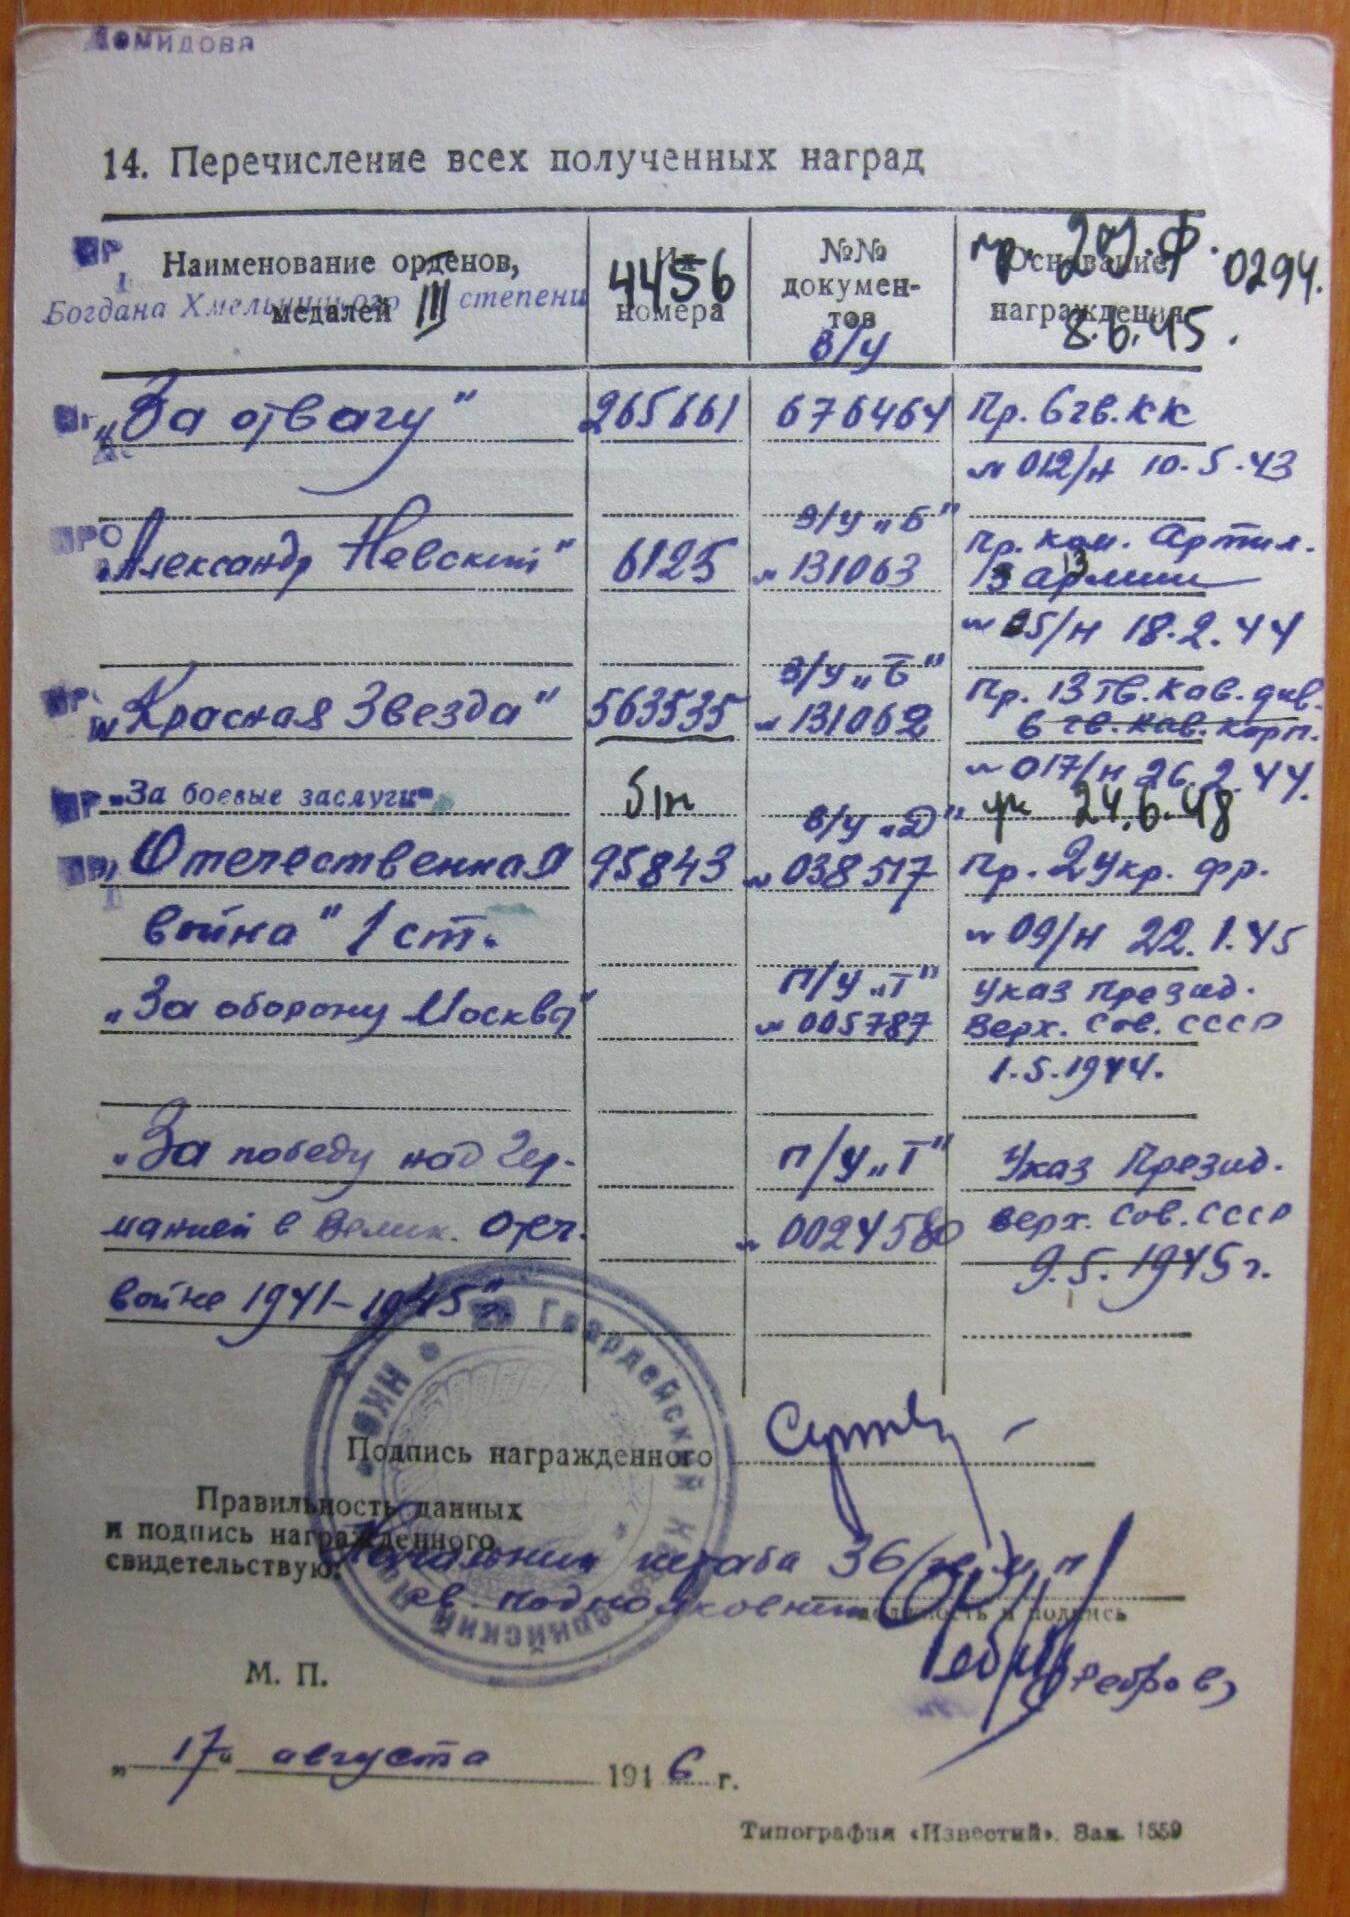 Демидова
14. Перечисление всех полученных наград
Наименование орденов, медалей
Их номера
№№ документов
Основание награждения
Богдана Хмельницкого III степени 4456 пр. 2 у. ф. 0294. 8.6.45.
в/у
„За отвагу" 265661 676464 Пр. 6 гв. КК
№ 012/н 10.5.43
в/у „Б" Пр. ком. Артил.
„Александр Невский" 6125 № 131063 13 армии
№ 05/н 18.2.44
в/у „Б" Пр. 13 гв. кав. див.
„Красная Звезда" 563535 № 131062 6 гв. кав. корп.
№ 017/н 26.2.44.
„За боевые заслуги" б/н ук 24.6.48
в/у „Д"
Отечественная 95843 № 038517 Пр. 2 Укр. фр.
война" 1 ст. № 09/н 22.1.45
п/у „Т" Указ Презид.
„За оборону Москвы" № 005787 Верх. Сов. СССР
1.5.1944.
„За победу над Гер- п/у „Т" Указ Презид.
манией в Велик. Отеч. № 0024580 Верх. Сов. СССР
9.5.1945 г.
войне 1941-1945 г."
Подпись награжденного
Правильность данных
и подпись награжденного
свидетельствую:
Начальник штаба 36
гв. подполковник
должность и подпись
Ребров
Гвардейский
НКО
М. П.
„17" августа 1946 г.
Типография «Известий». Зак. 1559